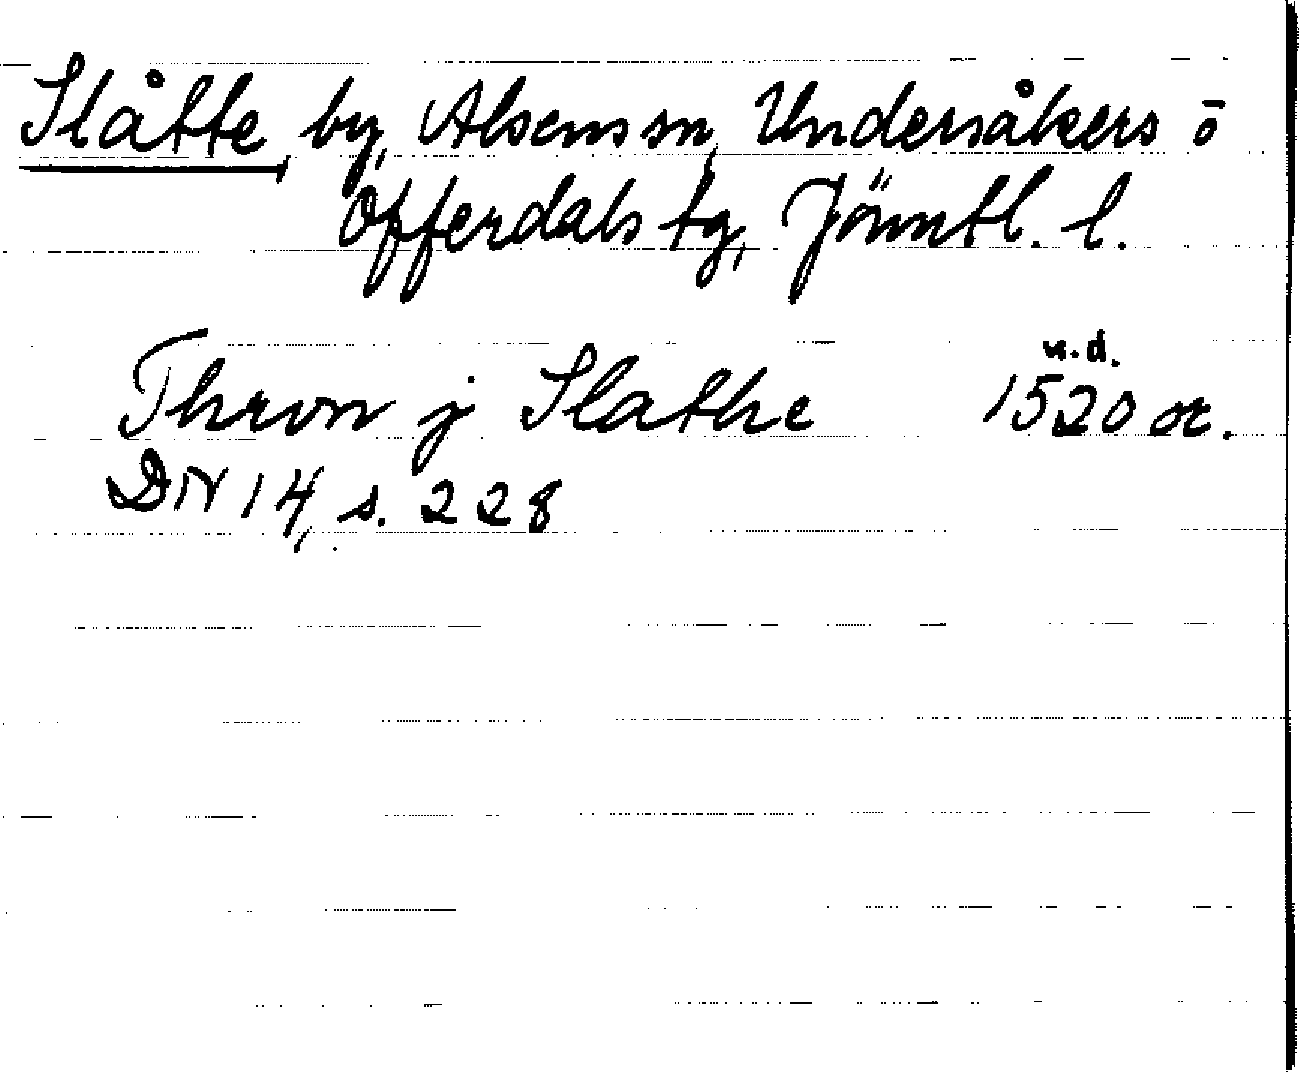 Slåtte, by, Alsens sn, Undersåkers o
Offerdals tg, Jämtl. l.
u.d.
Thron j Slathe 1520 or.
DN 14, s. 228